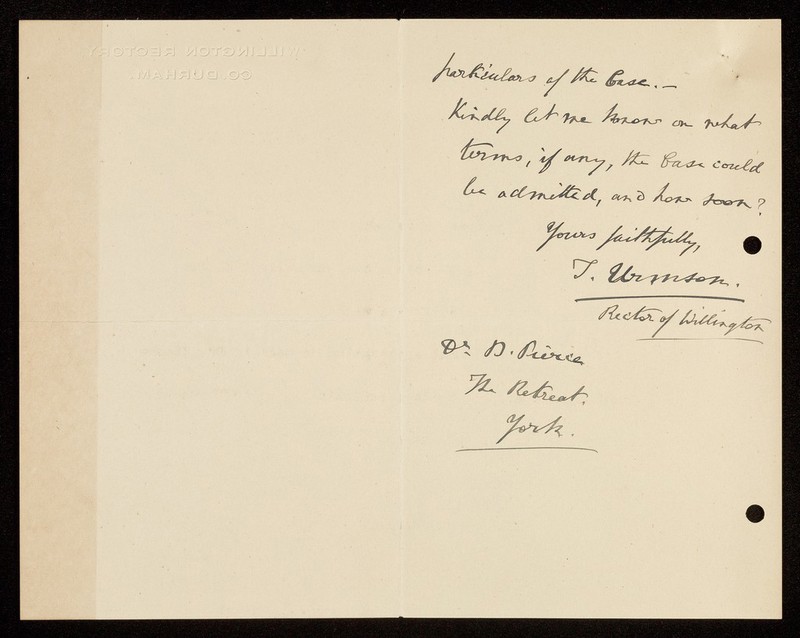 WILLINGTON RECTORY
CO. DURHAM.
particulars of the Case. —
Kindly let me know on what
terms, if any, the Case could
be admitted, and how soon?
Yours faithfully,
T. Urmson.
Rector of Willington
Dr. B. Pierce
The Retreat.
York.